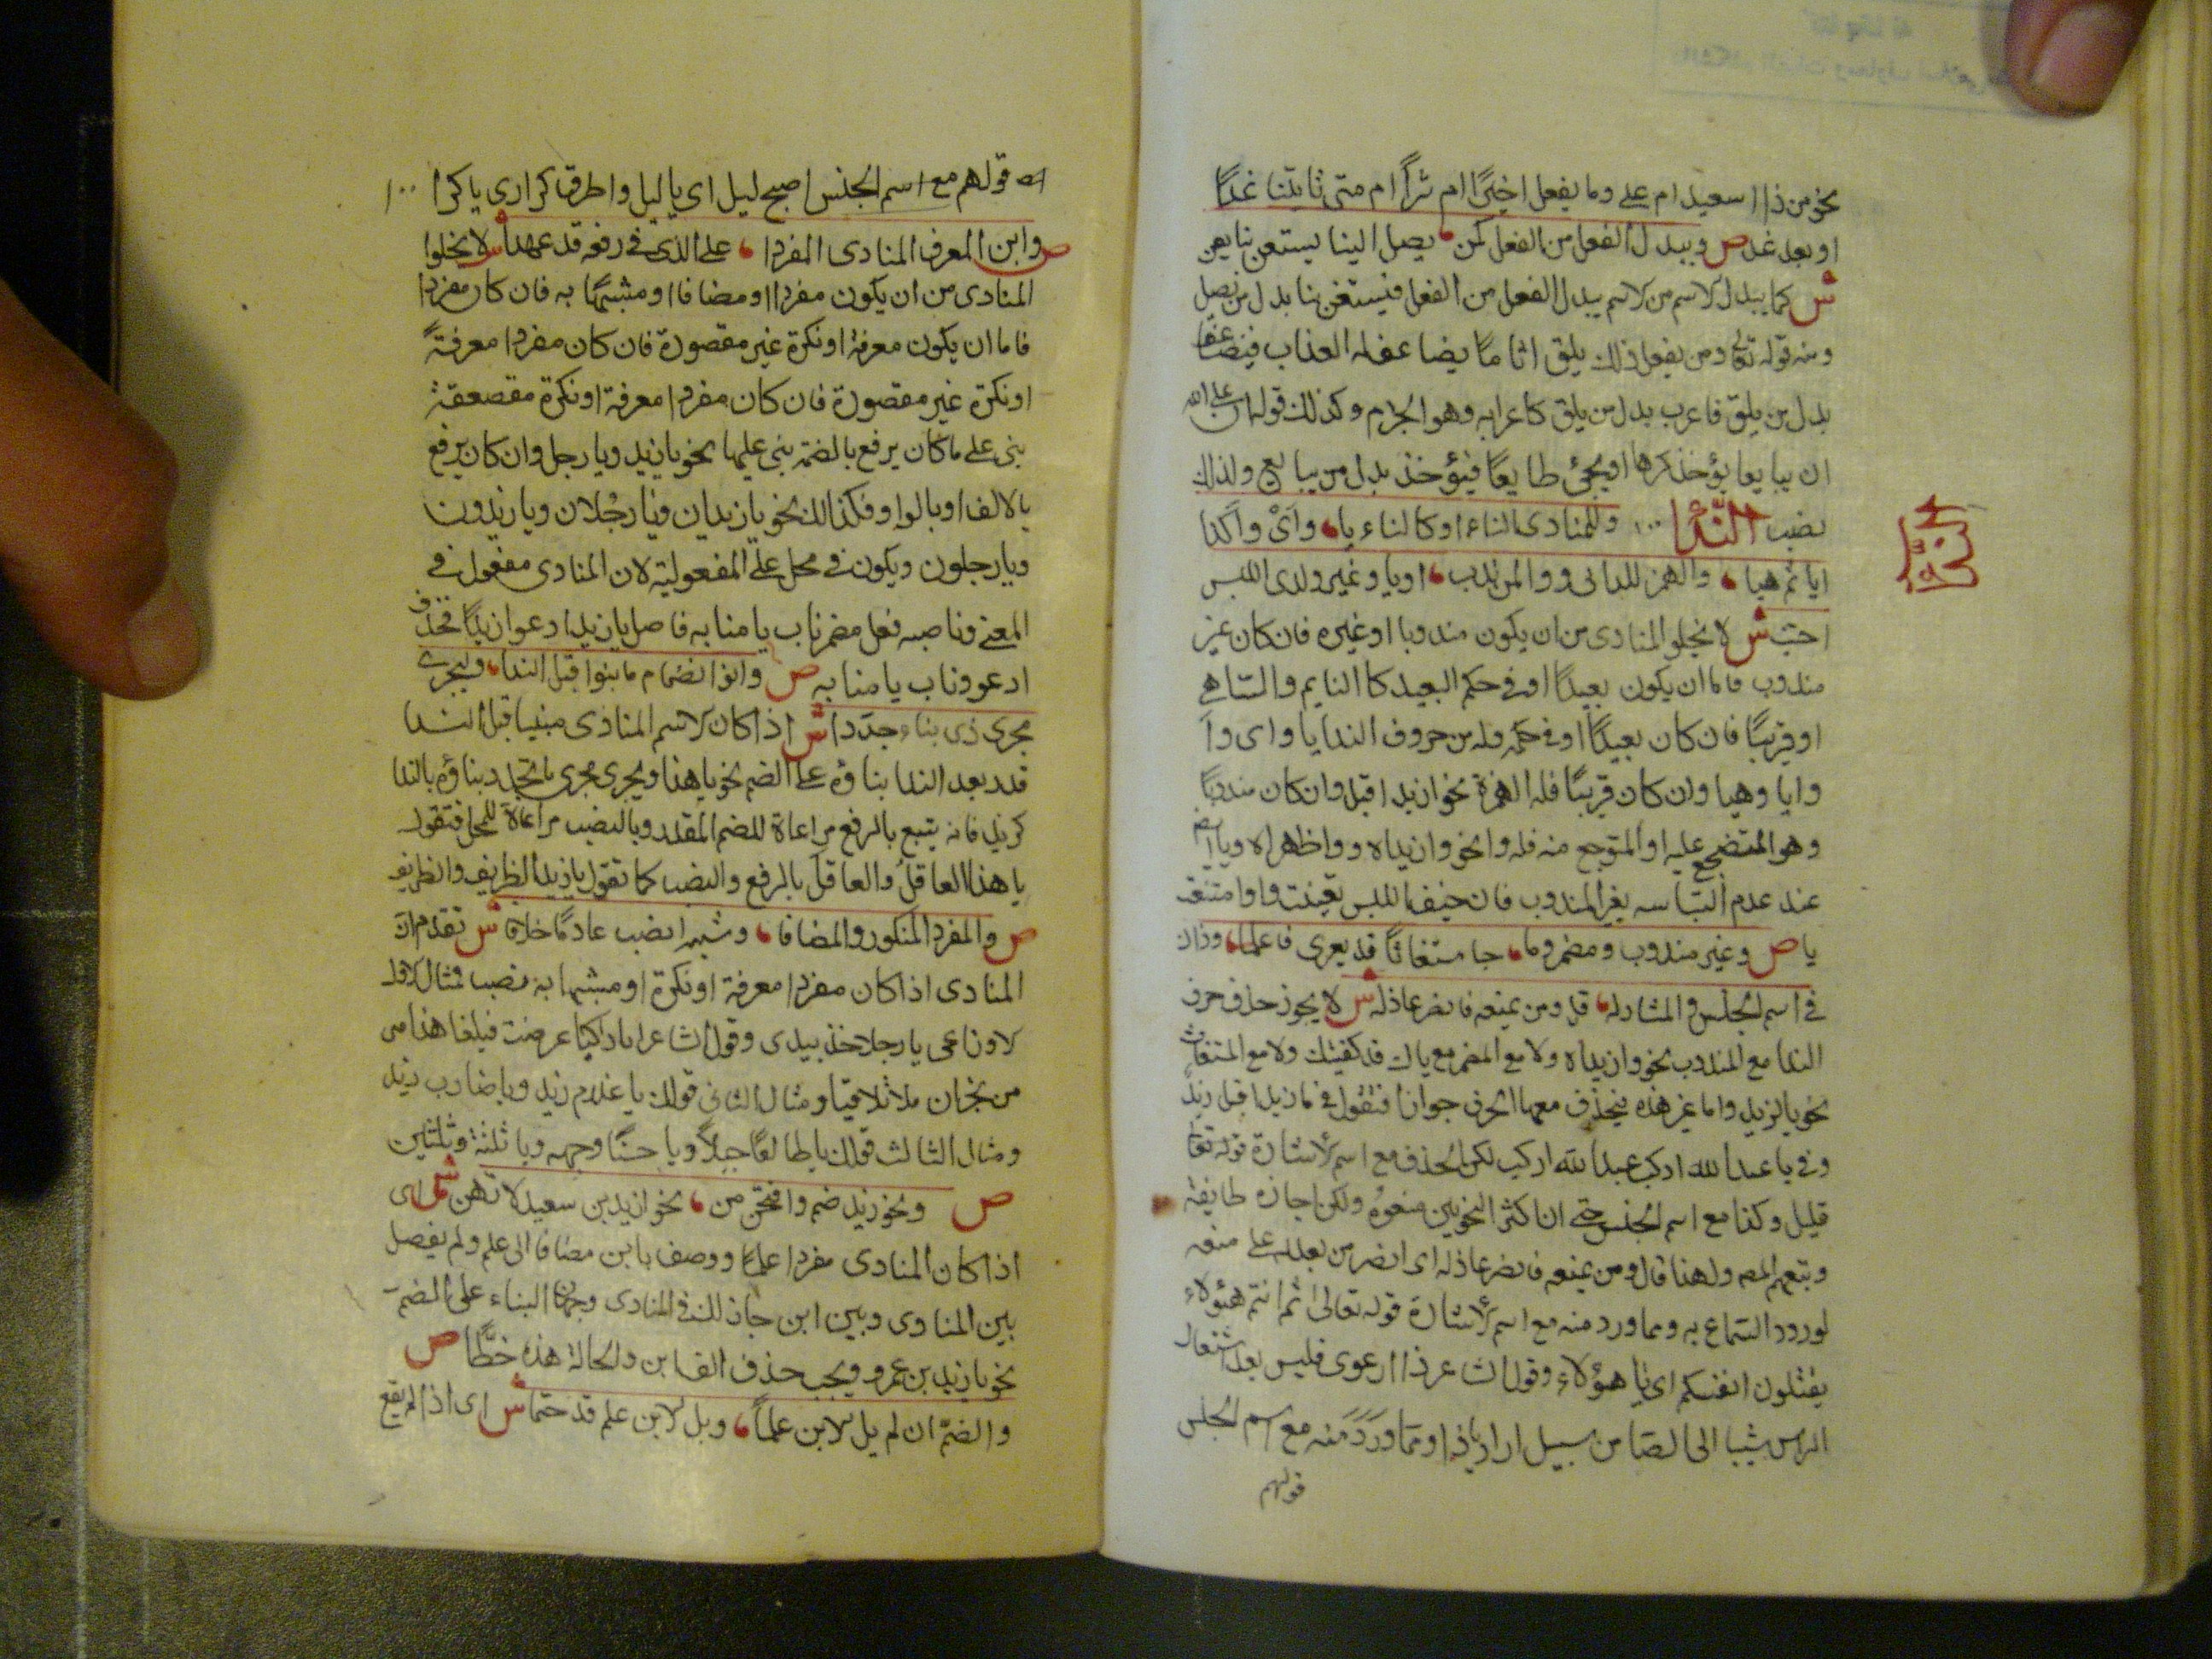 نحو من ذا اسعيد ام علي وما يفعل اخيرًا ام شرًا ام متى تاتنا غدًا
او بعد غد ص ويبدل الفعل من الفعل كمن يصل الينا يستعن بنا يعن
ش كما يبدل الاسم من الاسم يبدل الفعل من الفعل فيستعن بنا بدل من يصل
ومنه قوله تعالى ومن يفعل ذلك يلق اثامًا يضاعف له العذاب فيضاعف
بدل من يلق فاعرب بدل من يلق كاعرابه وهو الجزم وكذلك قوله ان علي الله
ان يبايعا يؤخذ كرها او يجئ طايعًا فيؤخذ بدل من يبايع ولذلك
نصب النّدا وللمنادى الناء او كالناء يا واي وآ كذا
ايا ثم هيا والهمز للداني ووا لمن ندب او يا وغير وا لدى اللبس
اجتنب ش لا يخلو المنادى من ان يكون مندوبا او غيره فان كان غير
مندوب فاما ان يكون بعيدًا او في حكم البعيد كالنايم والساهي
او قريبًا فان كان بعيدًا او في حكمه فله من حروف الندا يا واى وآ
وايا وهيا وان كان قريبًا فله الهمزة نحو ازيد اقبل وان كان مندوبًا
وهو المتفجع عليه او المتوجع منه فله وا نحو وازيداه وواظهراه ويا ايضا
عند عدم التباسه بغير المندوب فان خيف اللبس تعينت وا وامتنعت
يا ص وغير مندوب ومضمر وما جا مستغاثًا قد يعرى فاعلما وذاك
في اسم الجنس والمشار له قل ومن يمنعه فانصر عاذله ش لا يجوز حذف حرف
الندا مع المندوب نحو وازيداه ولا مع المضمر مع ياك قد كفيتك ولا مع المستغاث
نحو يا لزيد واما غير هذه فيحذف معها الحرف جوازا فتقول في يا زيد اقبل زيد
وفي يا عبد الله اركب عبد الله اركب لكن الحذف مع اسم الاشارة قوله تعالى
قليل وكذا مع اسم الجنس حتى ان اكثر النحويين منعوه ولكن اجازه طايفة
وتبعهم المص ولهذا قال ومن يمنعه فانصر عاذله اى انصر من يعذله على منعه
لورود السماع به ومما ورد منه مع اسم الاشارة قوله تعالى ثم انتم هؤلاء
يقتلون انفسكم اى يا هؤلاء وقول الشاعر ذا ارعوى فليس بعد اشتعال
الراس شيبا الى الصبا من سبيل اراد يا ذا ومما ورد منه مع اسم الجنس
قولهم
قولهم مع اسم الجنس اصبح ليل اى يا ليل واطرق كرا اى يا كرا ١٠٠
ص وابن المعرف المنادى المفردا على الذى في رفعه قد عهدا ش لا يخلوا
المنادى من ان يكون مفردا او مضافا او مشبهًا به فان كان مفردا
فاما ان يكون معرفة او نكرة غير مقصورة فان كان مفردا معرفةً
او نكرة غير مقصورة فان كان مفردا معرفة او نكرة مقصعقة
بنى على ما كان يرفع بالضمة بنى عليها نحو يا زيد ويا رجل وان كان يرفع
بالالف او بالواو فكذالك نحو يا زيدان ويا رجُلان ويا زيدون
ويا رجلون ويكون في محل على المفعولية لان المنادى مفعول في
المعنى وناصبه فعل مضمر ناب يا منابه فاصل يا زيد ادعو زيدًا فحذف
ادعو وناب يا منابه ص وانو انضمام ما بنوا قبل الندا وليجرى
مجرى ذى بناء جدّدا ش اذا كان الاسم المنادى مبنيا قبل الندا
قدر بعد الندا بناؤه على الضم نحو يا هذا ويجرى مجرى ما تجدد بناؤه بالندا
كزيد فانه يتبع بالرفع مراعاة للضم المقدر وبالنصب مراعاة للمحل فتقول
يا هذا العاقلُ والعاقلَ بالرفع والنصب كما تقول يا زيد الظريف والظريف
ص والمفرد المنكور والمضافا وشبهه انصب عادمًا خلافا ش تقدم ان
المنادى اذا كان مفردا معرفة او نكرة او مشبها به نصب فمثال الاول
لاونا عمى يا رجلا خذ بيدى وقول الشاعر ايا راكبًا عرضت فبلغا هذا مى
من نجران ملا تلاقيا ومثال الثانى قولك يا غلام زيد ويا ضارب زيد
ومثال الثالث قولك يا طالعًا جبلًا ويا حسنًا وجهه ويا ثلثة وثلثين
ص ونحو زيد ضم وافتحن من نحو ازيد بن سعيد لا تهن ش اى
اذا كان المنادى مفردا علمًا ووصف بابن مضافا الى علم ولم يفصل
بين المنادى وبين ابن جاز لك في المنادى وجهان البناء على الضم
نحو يا زيد بن عمرو ويجب حذف الف ابن والحالة هذه خطًّا ص
والضمّ ان لم يل الابن علماً ويل الابن علم قد حتما ش اى اذا لم يقع